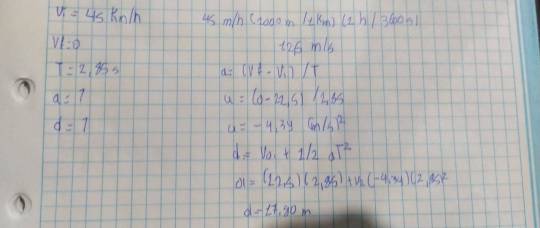 Vi = 45 Km/h
Vf=0
T= 2,85 s
a= ?
d= ?
45 m/h (1000m / 1Km) (1 h / 3600s)
12,5 m/s
a= (Vf - Vi) /T
a= (0-12,5) /2,85
a= -4,39 (m/s)²
d= Vo. + 1/2 aT²
d= (12,5) (2,85) + 1/2 (-4,39) (2,85)²
d=17,80 m